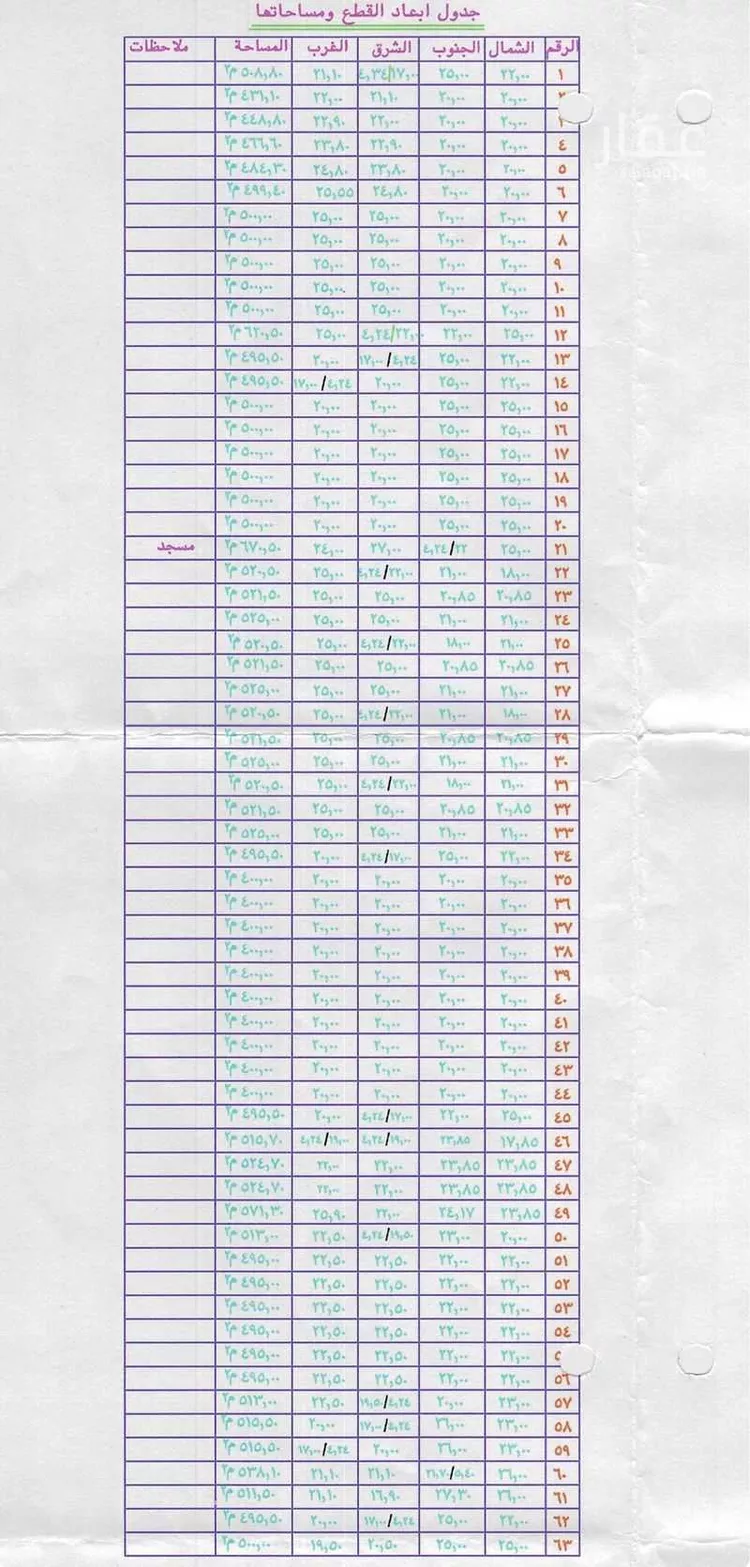 جدول ابعاد القطع ومساحاتها
الرقم الشمال الجنوب الشرق الغرب المساحة ملاحظات
١ ٢٢,٠٠ ٢٥,٠٠ ٤,٣٤/١٧,٠٠ ٢١,١٠ ٥٠٨,٨٠ م٢
٢ ٢٠,٠٠ ٢٠,٠٠ ٢١,١٠ ٢٢,٠٠ ٤٣١,١٠ م٢
٢٠,٠٠ ٢٠,٠٠ ٢٢,٠٠ ٢٢,٩٠ ٤٤٨,٨٠ م٢
٤ ٢٠,٠٠ ٢٠,٠٠ ٢٢,٩٠ ٢٣,٨٠ ٤٦٦,٦٠ م٢
٥ ٢٠,٠٠ ٢٠,٠٠ ٢٣,٨٠ ٢٤,٨٠ ٤٨٤,٣٠ م٢
٦ ٢٠,٠٠ ٢٠,٠٠ ٢٤,٨٠ ٢٥,٥٥ ٤٩٩,٤٠ م٢
٧ ٢٠,٠٠ ٢٠,٠٠ ٢٥,٠٠ ٢٥,٠٠ ٥٠٠,٠٠ م٢
٨ ٢٠,٠٠ ٢٠,٠٠ ٢٥,٠٠ ٢٥,٠٠ ٥٠٠,٠٠ م٢
٩ ٢٠,٠٠ ٢٠,٠٠ ٢٥,٠٠ ٢٥,٠٠ ٥٠٠,٠٠ م٢
١٠ ٢٠,٠٠ ٢٠,٠٠ ٢٥,٠٠ ٢٥,٠٠ ٥٠٠,٠٠ م٢
١١ ٢٠,٠٠ ٢٠,٠٠ ٢٥,٠٠ ٢٥,٠٠ ٥٠٠,٠٠ م٢
١٢ ٢٥,٠٠ ٢٢,٠٠ ٤,٢٤/٢٢,٠٠ ٢٥,٠٠ ٦٢٠,٥٠ م٢
١٣ ٢٢,٠٠ ٢٥,٠٠ ١٧,٠٠/٤,٢٤ ٢٠,٠٠ ٤٩٥,٥٠ م٢
١٤ ٢٢,٠٠ ٢٥,٠٠ ٢٠,٠٠ ١٧,٠٠/٤,٢٤ ٤٩٥,٥٠ م٢
١٥ ٢٥,٠٠ ٢٥,٠٠ ٢٠,٠٠ ٢٠,٠٠ ٥٠٠,٠٠ م٢
١٦ ٢٥,٠٠ ٢٥,٠٠ ٢٠,٠٠ ٢٠,٠٠ ٥٠٠,٠٠ م٢
١٧ ٢٥,٠٠ ٢٥,٠٠ ٢٠,٠٠ ٢٠,٠٠ ٥٠٠,٠٠ م٢
١٨ ٢٥,٠٠ ٢٥,٠٠ ٢٠,٠٠ ٢٠,٠٠ ٥٠٠,٠٠ م٢
١٩ ٢٥,٠٠ ٢٥,٠٠ ٢٠,٠٠ ٢٠,٠٠ ٥٠٠,٠٠ م٢
٢٠ ٢٥,٠٠ ٢٥,٠٠ ٢٠,٠٠ ٢٠,٠٠ ٥٠٠,٠٠ م٢
٢١ ٢٥,٠٠ ٤,٢٤/٢٢ ٢٧,٠٠ ٢٤,٠٠ ٦٧٠,٥٠ م٢ مسجد
٢٢ ١٨,٠٠ ٢١,٠٠ ٤,٢٤/٢٢,٠٠ ٢٥,٠٠ ٥٢٠,٥٠ م٢
٢٣ ٢٠,٨٥ ٢٠,٨٥ ٢٥,٠٠ ٢٥,٠٠ ٥٢١,٥٠ م٢
٢٤ ٢١,٠٠ ٢١,٠٠ ٢٥,٠٠ ٢٥,٠٠ ٥٢٥,٠٠ م٢
٢٥ ٢١,٠٠ ١٨,٠٠ ٤,٢٤/٢٢,٠٠ ٢٥,٠٠ ٥٢٠,٥٠ م٢
٢٦ ٢٠,٨٥ ٢٠,٨٥ ٢٥,٠٠ ٢٥,٠٠ ٥٢١,٥٠ م٢
٢٧ ٢١,٠٠ ٢١,٠٠ ٢٥,٠٠ ٢٥,٠٠ ٥٢٥,٠٠ م٢
٢٨ ١٨,٠٠ ٢١,٠٠ ٤,٢٤/٢٢,٠٠ ٢٥,٠٠ ٥٢٠,٥٠ م٢
٢٩ ٢٠,٨٥ ٢٠,٨٥ ٢٥,٠٠ ٢٥,٠٠ ٥٢١,٥٠ م٢
٣٠ ٢١,٠٠ ٢١,٠٠ ٢٥,٠٠ ٢٥,٠٠ ٥٢٥,٠٠ م٢
٣١ ٢١,٠٠ ١٨,٠٠ ٤,٢٤/٢٢,٠٠ ٢٥,٠٠ ٥٢٠,٥٠ م٢
٣٢ ٢٠,٨٥ ٢٠,٨٥ ٢٥,٠٠ ٢٥,٠٠ ٥٢١,٥٠ م٢
٣٣ ٢١,٠٠ ٢١,٠٠ ٢٥,٠٠ ٢٥,٠٠ ٥٢٥,٠٠ م٢
٣٤ ٢٢,٠٠ ٢٥,٠٠ ٤,٢٤/١٧,٠٠ ٢٠,٠٠ ٤٩٥,٥٠ م٢
٣٥ ٢٠,٠٠ ٢٠,٠٠ ٢٠,٠٠ ٢٠,٠٠ ٤٠٠,٠٠ م٢
٣٦ ٢٠,٠٠ ٢٠,٠٠ ٢٠,٠٠ ٢٠,٠٠ ٤٠٠,٠٠ م٢
٣٧ ٢٠,٠٠ ٢٠,٠٠ ٢٠,٠٠ ٢٠,٠٠ ٤٠٠,٠٠ م٢
٣٨ ٢٠,٠٠ ٢٠,٠٠ ٢٠,٠٠ ٢٠,٠٠ ٤٠٠,٠٠ م٢
٣٩ ٢٠,٠٠ ٢٠,٠٠ ٢٠,٠٠ ٢٠,٠٠ ٤٠٠,٠٠ م٢
٤٠ ٢٠,٠٠ ٢٠,٠٠ ٢٠,٠٠ ٢٠,٠٠ ٤٠٠,٠٠ م٢
٤١ ٢٠,٠٠ ٢٠,٠٠ ٢٠,٠٠ ٢٠,٠٠ ٤٠٠,٠٠ م٢
٤٢ ٢٠,٠٠ ٢٠,٠٠ ٢٠,٠٠ ٢٠,٠٠ ٤٠٠,٠٠ م٢
٤٣ ٢٠,٠٠ ٢٠,٠٠ ٢٠,٠٠ ٢٠,٠٠ ٤٠٠,٠٠ م٢
٤٤ ٢٠,٠٠ ٢٠,٠٠ ٢٠,٠٠ ٢٠,٠٠ ٤٠٠,٠٠ م٢
٤٥ ٢٥,٠٠ ٢٢,٠٠ ٤,٢٤/١٧,٠٠ ٢٠,٠٠ ٤٩٥,٥٠ م٢
٤٦ ١٧,٨٥ ٢٣,٨٥ ٤,٢٤/١٩,٠٠ ٤,٢٤/١٩,٠٠ ٥١٥,٧٠ م٢
٤٧ ٢٣,٨٥ ٢٣,٨٥ ٢٢,٠٠ ٢٢,٠٠ ٥٢٤,٧٠ م٢
٤٨ ٢٣,٨٥ ٢٣,٨٥ ٢٢,٠٠ ٢٢,٠٠ ٥٢٤,٧٠ م٢
٤٩ ٢٣,٨٥ ٢٤,١٧ ٢٢,٠٠ ٢٥,٩٠ ٥٧١,٣٠ م٢
٥٠ ٢٠,٠٠ ٢٣,٠٠ ٤,٢٤/١٩,٥٠ ٢٢,٥٠ ٥١٣,٠٠ م٢
٥١ ٢٢,٠٠ ٢٢,٠٠ ٢٢,٥٠ ٢٢,٥٠ ٤٩٥,٠٠ م٢
٥٢ ٢٢,٠٠ ٢٢,٠٠ ٢٢,٥٠ ٢٢,٥٠ ٤٩٥,٠٠ م٢
٥٣ ٢٢,٠٠ ٢٢,٠٠ ٢٢,٥٠ ٢٢,٥٠ ٤٩٥,٠٠ م٢
٥٤ ٢٢,٠٠ ٢٢,٠٠ ٢٢,٥٠ ٢٢,٥٠ ٤٩٥,٠٠ م٢
٢٢,٠٠ ٢٢,٠٠ ٢٢,٥٠ ٢٢,٥٠ ٤٩٥,٠٠ م٢
٥٦ ٢٢,٠٠ ٢٢,٠٠ ٢٢,٥٠ ٢٢,٥٠ ٤٩٥,٠٠ م٢
٥٧ ٢٣,٠٠ ٢٠,٠٠ ١٩,٥٠/٤,٢٤ ٢٢,٥٠ ٥١٣,٠٠ م٢
٥٨ ٢٣,٠٠ ٢٦,٠٠ ١٧,٠٠/٤,٢٤ ٢٠,٠٠ ٥١٥,٥٠ م٢
٥٩ ٢٣,٠٠ ٢٦,٠٠ ٢٠,٠٠ ١٧,٠٠/٤,٢٤ ٥١٥,٥٠ م٢
٦٠ ٢٦,٠٠ ٢١,٧٠/٥,٤٠ ٢١,١٠ ٢١,١٠ ٥٣٨,١٠ م٢
٦١ ٢٦,٠٠ ٢٧,٣٠ ١٦,٩٠ ٢١,١٠ ٥١١,٥٠ م٢
٦٢ ٢٢,٠٠ ٢٥,٠٠ ١٧,٠٠/٤,٢٤ ٢٠,٠٠ ٤٩٥,٥٠ م٢
٦٣ ٢٥,٠٠ ٢٥,٠٠ ٢٠,٥٠ ١٩,٥٠ ٥٠٠,٠٠ م٢
عقار